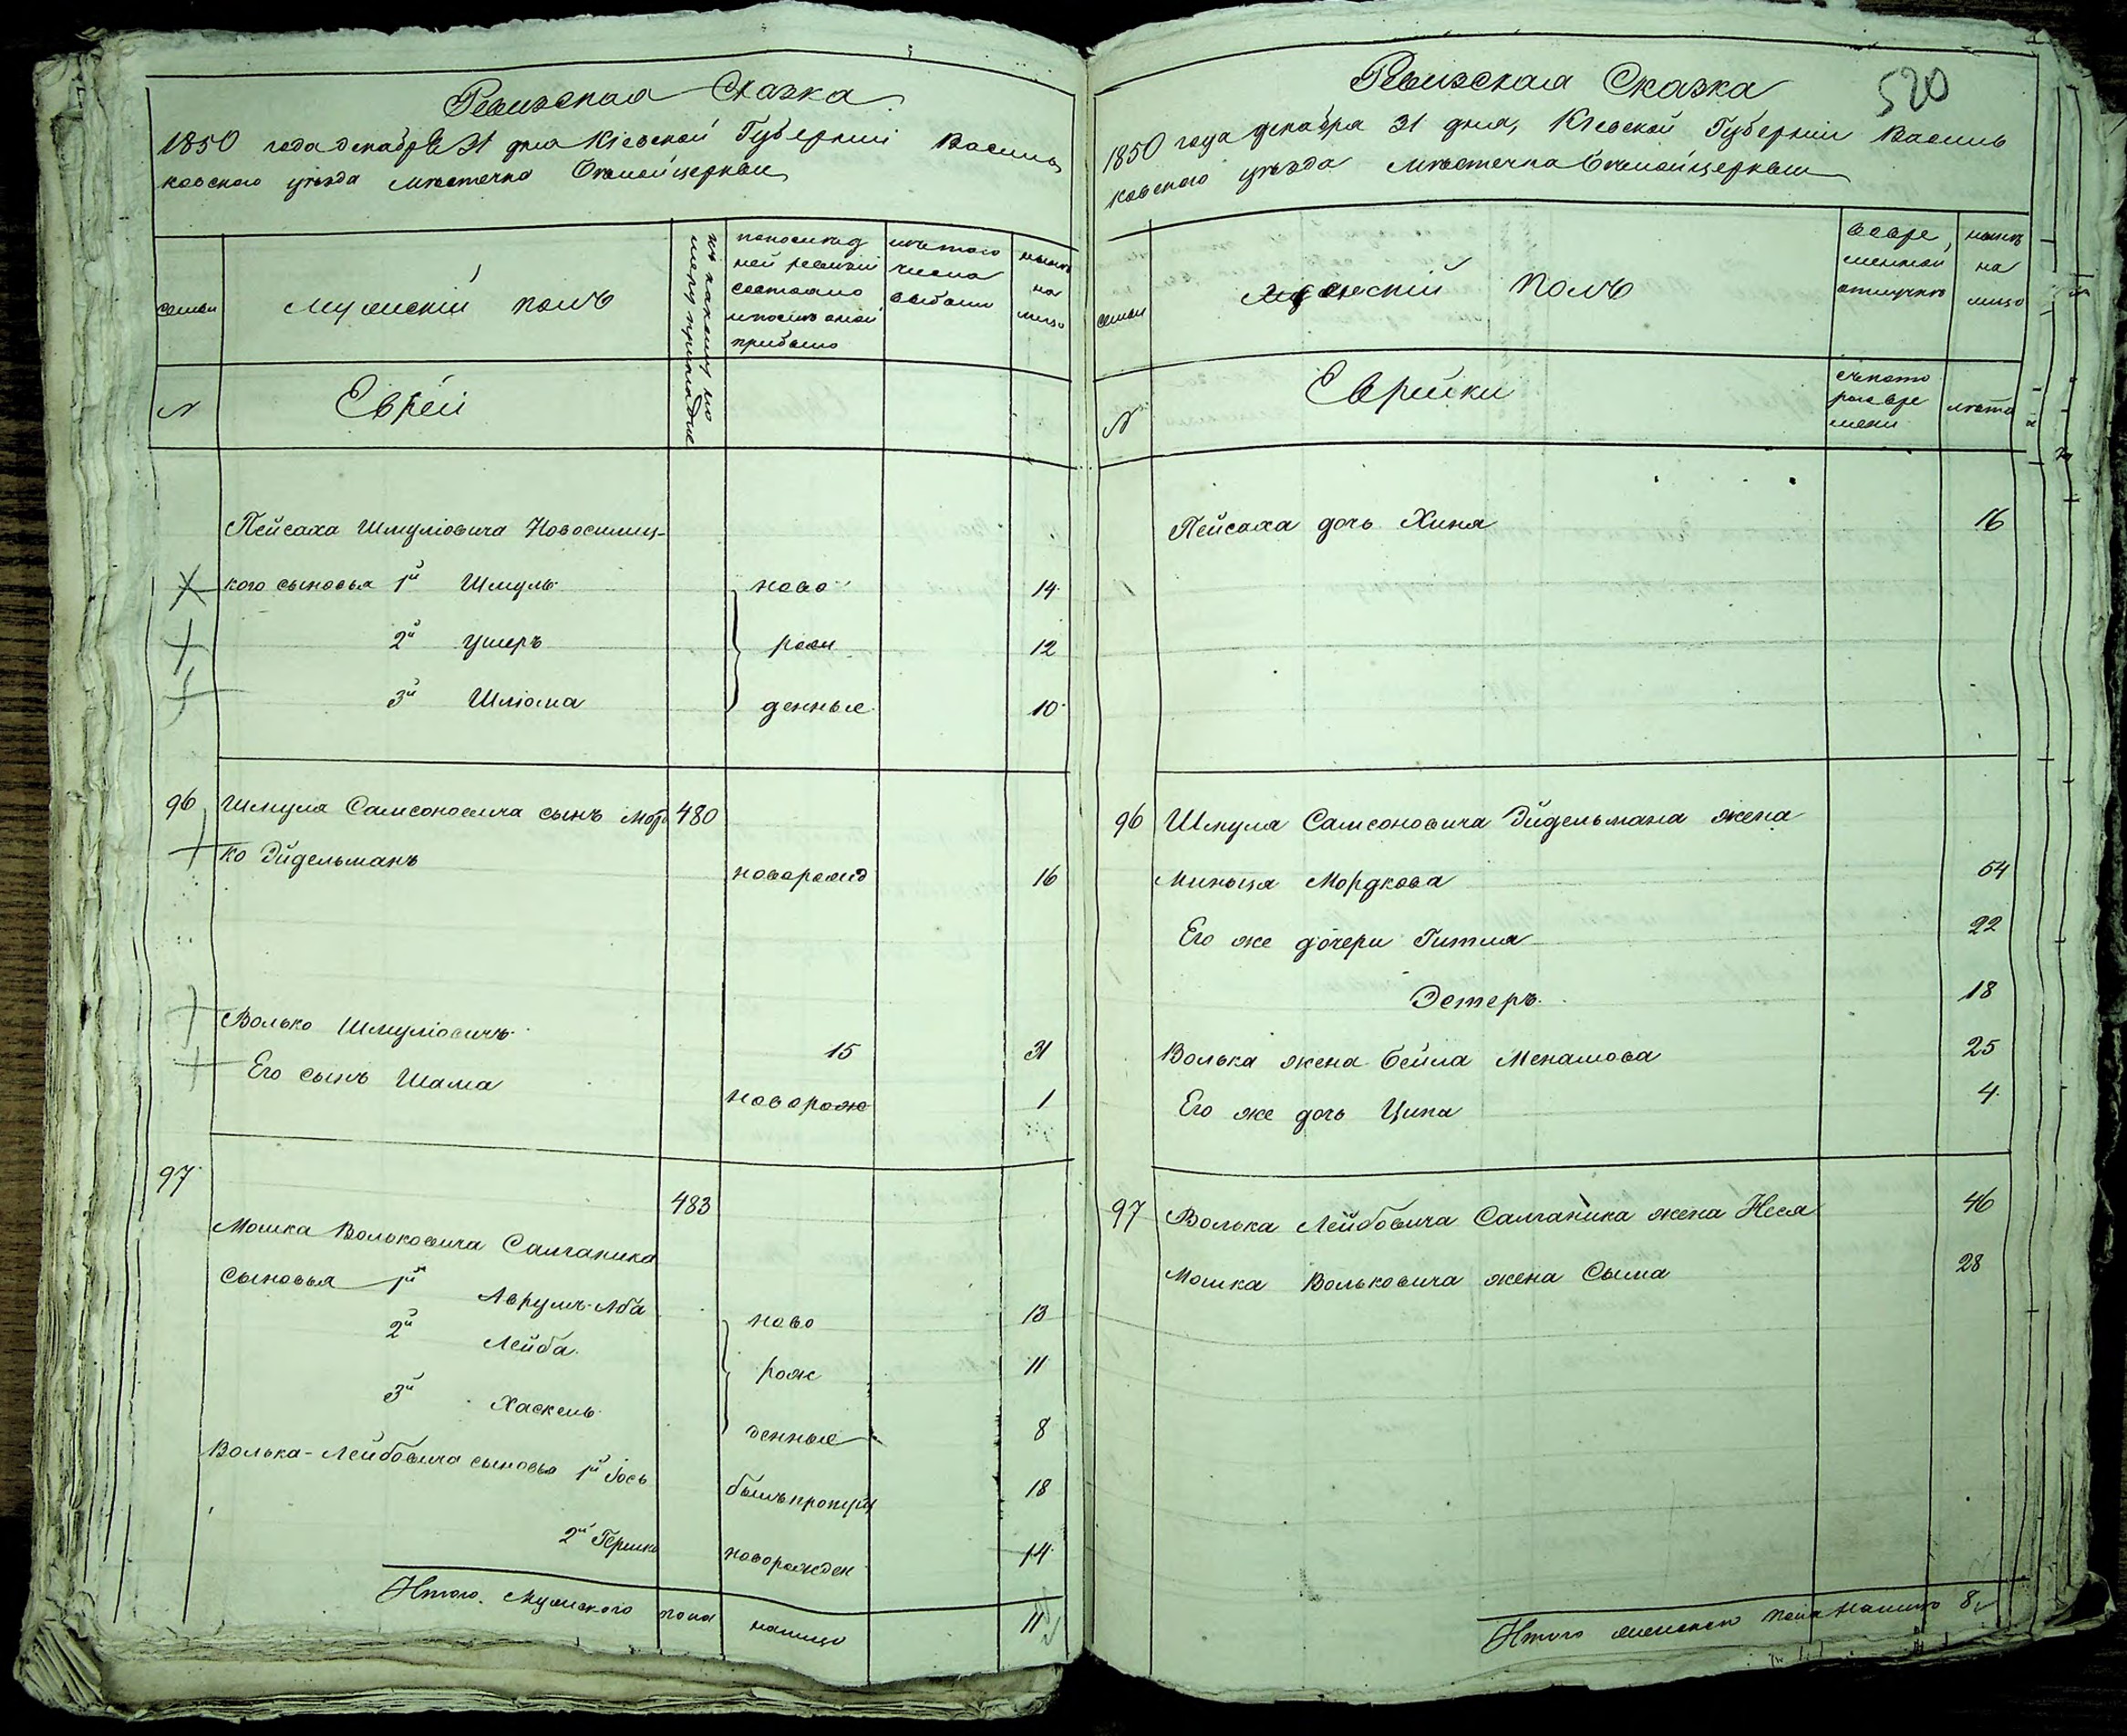 Ревизская Сказка
1850 года декабря 31 дня Кіевской Губерніи Василь
ковского уѣзда мѣстечка Бѣлойцеркви
семьи
мужескій полъ
по послѣд
ней ревизіи
состояло
и послѣ оной
прибыло
изъ того
числа
выбыло
нынѣ
на
лицо
№
Евреи
Пейсаха Шмуліовича Новоселиц-
кого сыновья 1й Шмуль ново 14
2й Ушеръ рож 12
3й Шліома денные 10
96 Шмуля Самсоновича сынъ Морд 480
ко Эйдельманъ новорожд 16
Волько Шмуліовичъ 15 31
Его сынъ Шама новорож 1
97 483
Мошка Вольковича Салганика
сыновья 1й Аврумъ-Аба ново 13
2й Лейба рож 11
3й Хаскель денные 8
Волька-Лейбовича сыновья 1й Іось былъ пропущ 18
2й Гершко новорожден 14
Итого мужеского пола налицо 11
Ревизская Сказка
520
1850 года декабря 31 дня, Кіевской Губерніи Василь
ковского уѣзда мѣстечка Бѣлойцеркви
семьи
женскій полъ
во вре
менной
отлучкѣ
нынѣ
на
лицо
№
Еврейки
съ кото
рого вре
мени
лѣта
Пейсаха дочь Хина 16
96 Шмуля Самсоновича Эйдельмана жена
Миньця Мордкова 54
Его же дочери Гитля 22
Эстеръ 18
Волька жена Бейла Менашова 25
Его же дочь Ципа 4
97 Волька Лейбовича Салганика жена Неся 46
Мошка Вольковича жена Сыма 28
Итого женского пола налицо 8